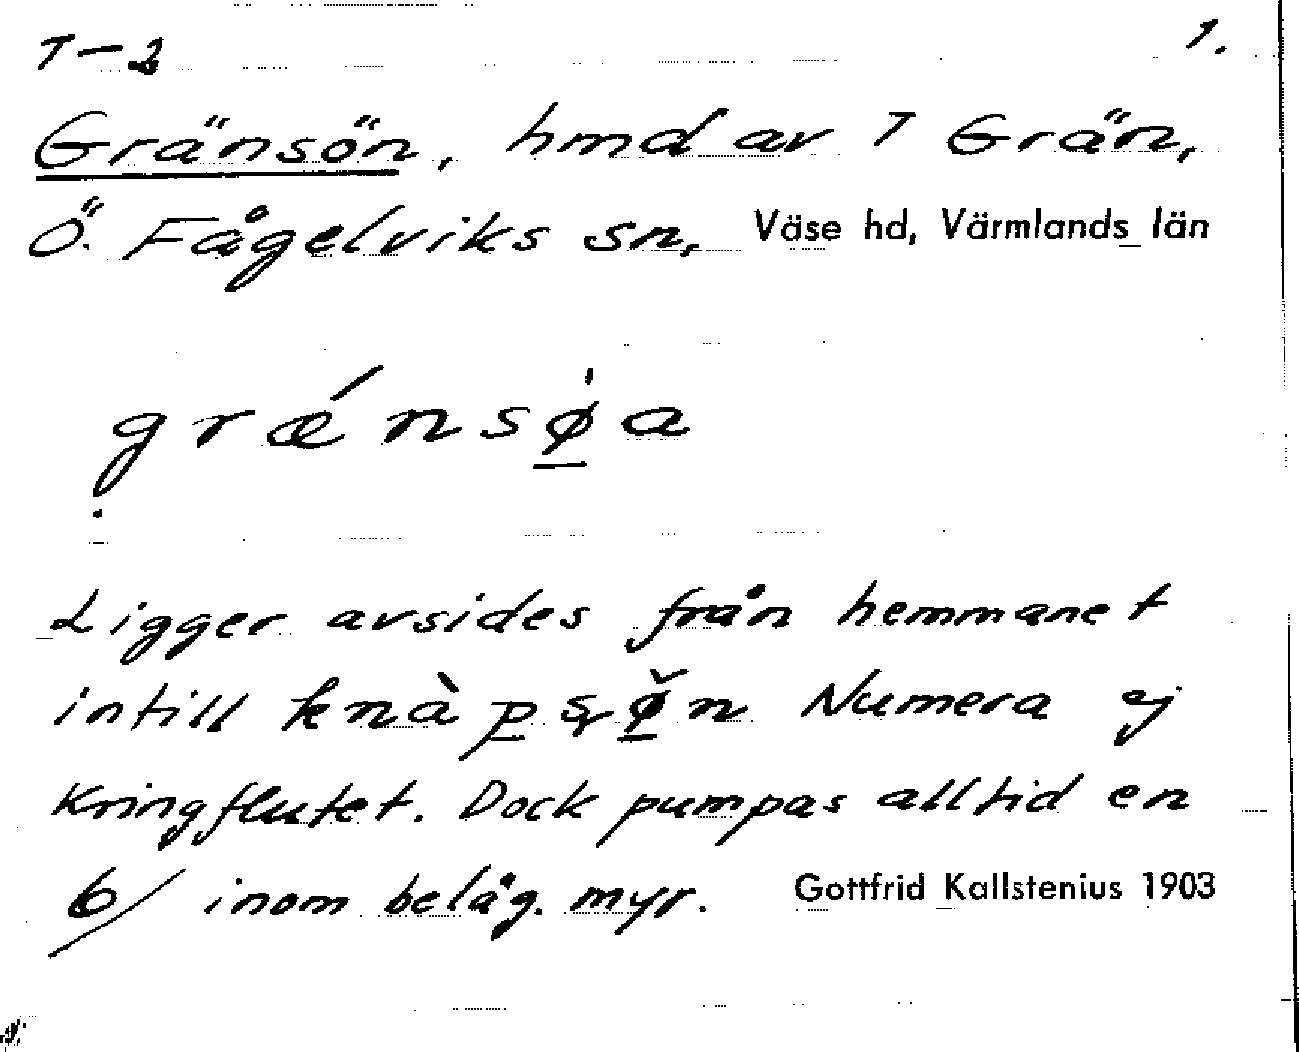 T-2 1.
Gränsön, hmd av T Grän,
Ö. Fågelviks sn, Väse hd, Värmlands län
grǽnsø̱̍a
Ligger avsides från hemmanet
intill knàpsø̱̌n Numera ej
Kringflutet. Dock pumpas alltid en
6/ inom beläg. myr. Gottfrid Kallstenius 1903